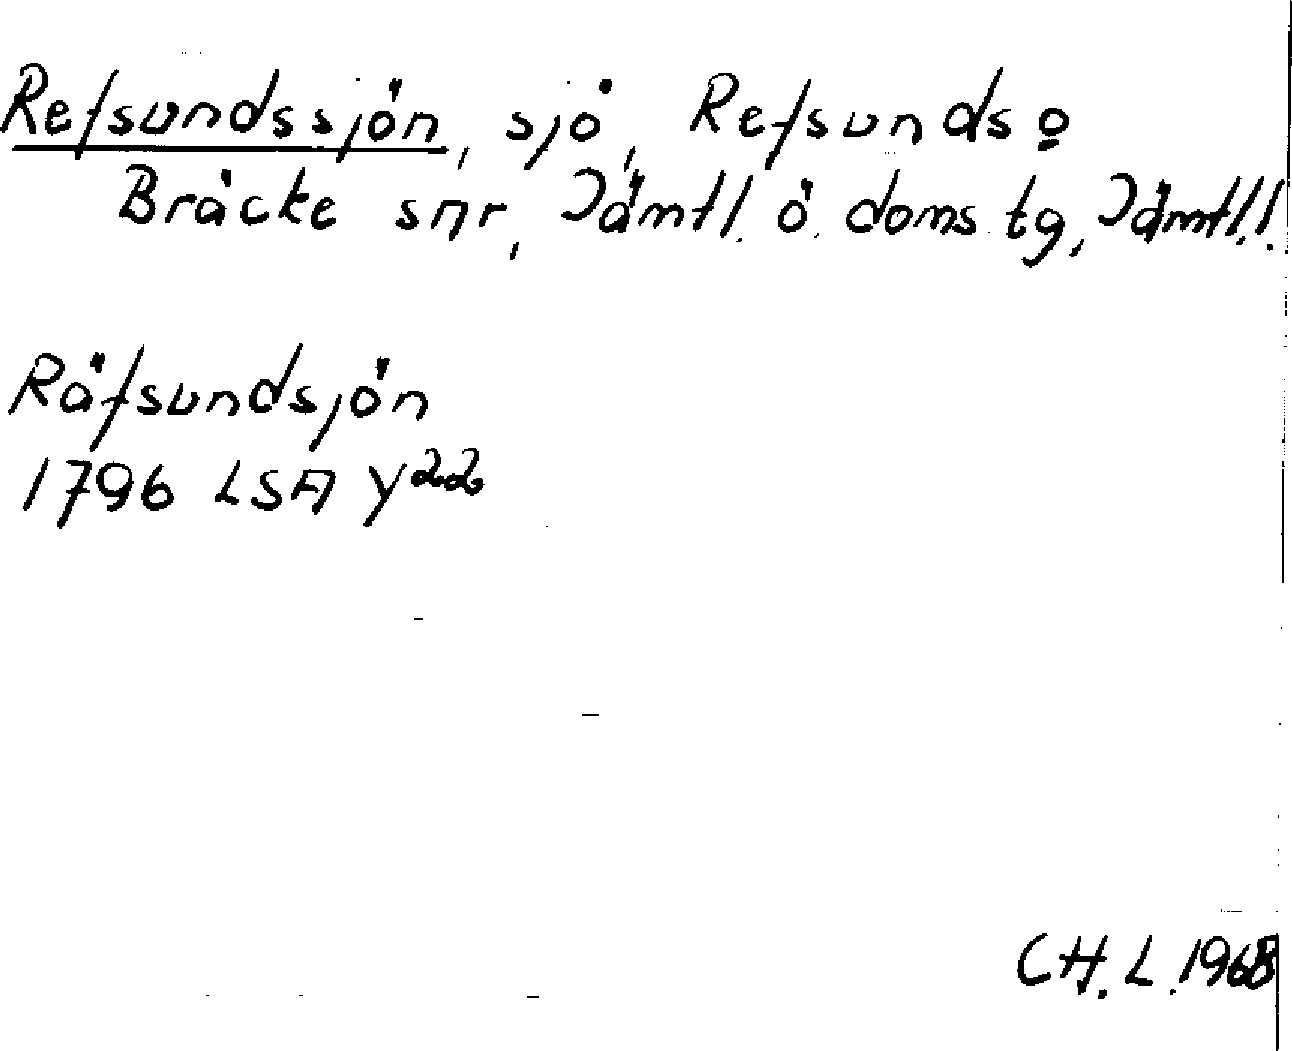 Refsundssjön, sjö, Refsunds o
Bräcke snr, Jämtl. ö. doms.tg, Jämtl.l.
Räfsundsjön
1796 LSA Y22
CH. L. 1968